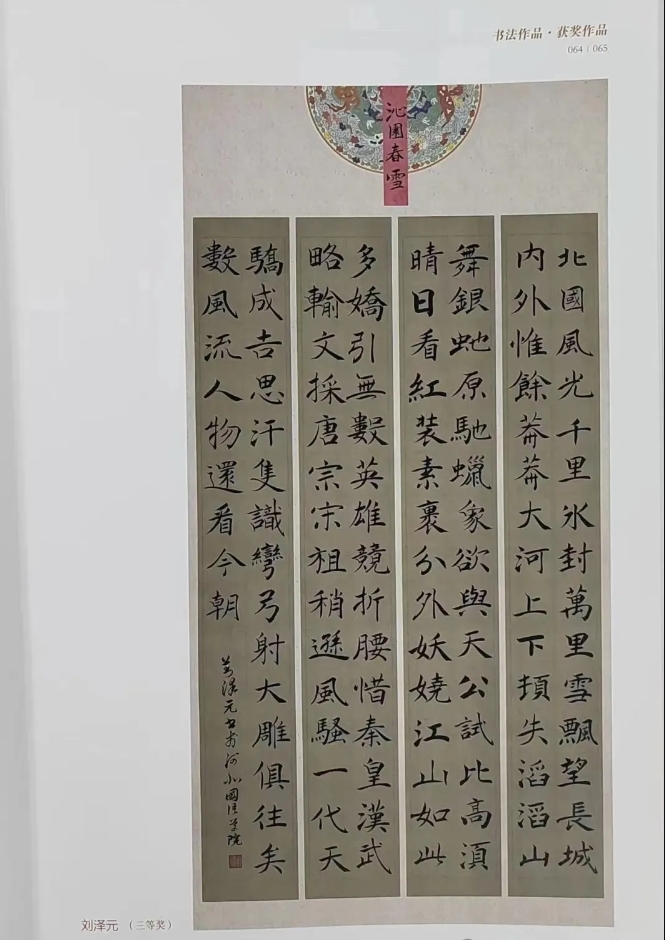 书法作品·获奖作品
064 | 065
沁園春雪
北國風光千里氷封萬里雪飄望長城
内外惟餘莽莽大河上下頓失滔滔山
舞銀虵原馳蠟象欲與天公試比高湏
晴日看紅装素裹分外妖嬈江山如此
多嬌引無數英雄競折腰惜秦皇漢武
略輸文採唐宗宋祖稍遜風騷一代天
驕成吉思汗隻識彎弓射大雕俱往矣
數風流人物還看今朝
澤元书於河北國學院
刘泽元 （三等奖）